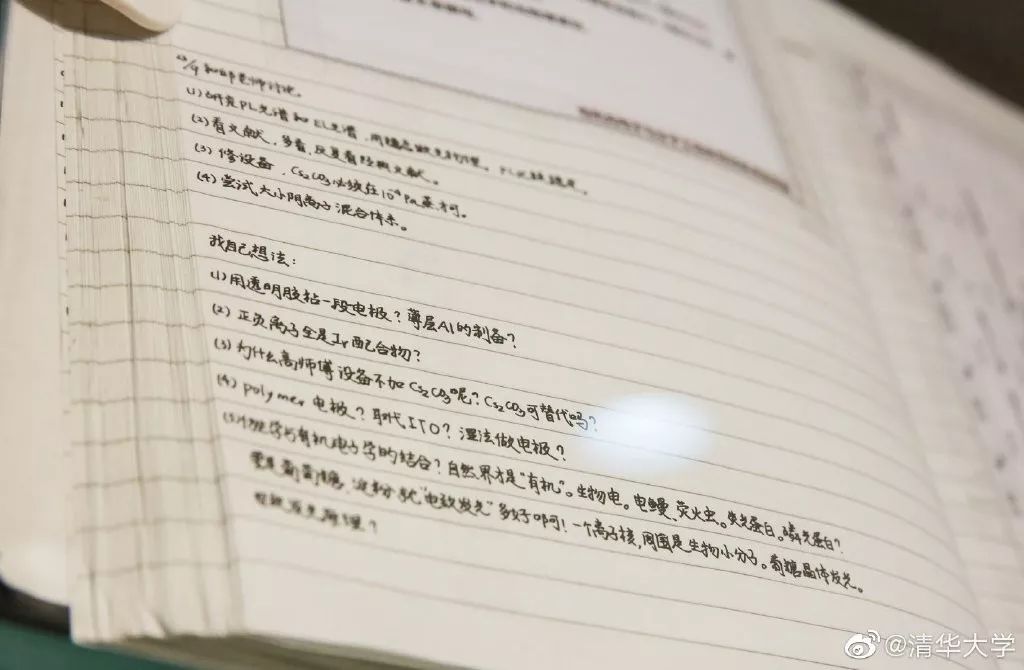 (1) 研究PL光谱和EL光谱,用
(2) 看文献,多看,反复看经典文献。
(3) 修设备,Cs₂CO₃必须在10⁻⁴Pa蒸才可。
(4) 尝试大小阴离子混合体系。
我自己想法:
(1) 用透明胶粘一段电极?薄层Al的制备?
(2) 正负离子全是Ir配合物?
(3) 为什么高师傅设备不加Cs₂CO₃呢?Cs₂CO₃可替代吗?
(4) polymer 电极?取代ITO?湿法做电极?
(5) 学与有机电子学的结合?自然界才是"有机"。生物电。电鳗、荧火虫。荧光蛋白。磷光蛋白?
要是葡萄糖、淀粉就"电致发光"多好啊!一个离子核,周围是生物小分子。葡糖晶体发光。
发光原理?
@清华大学